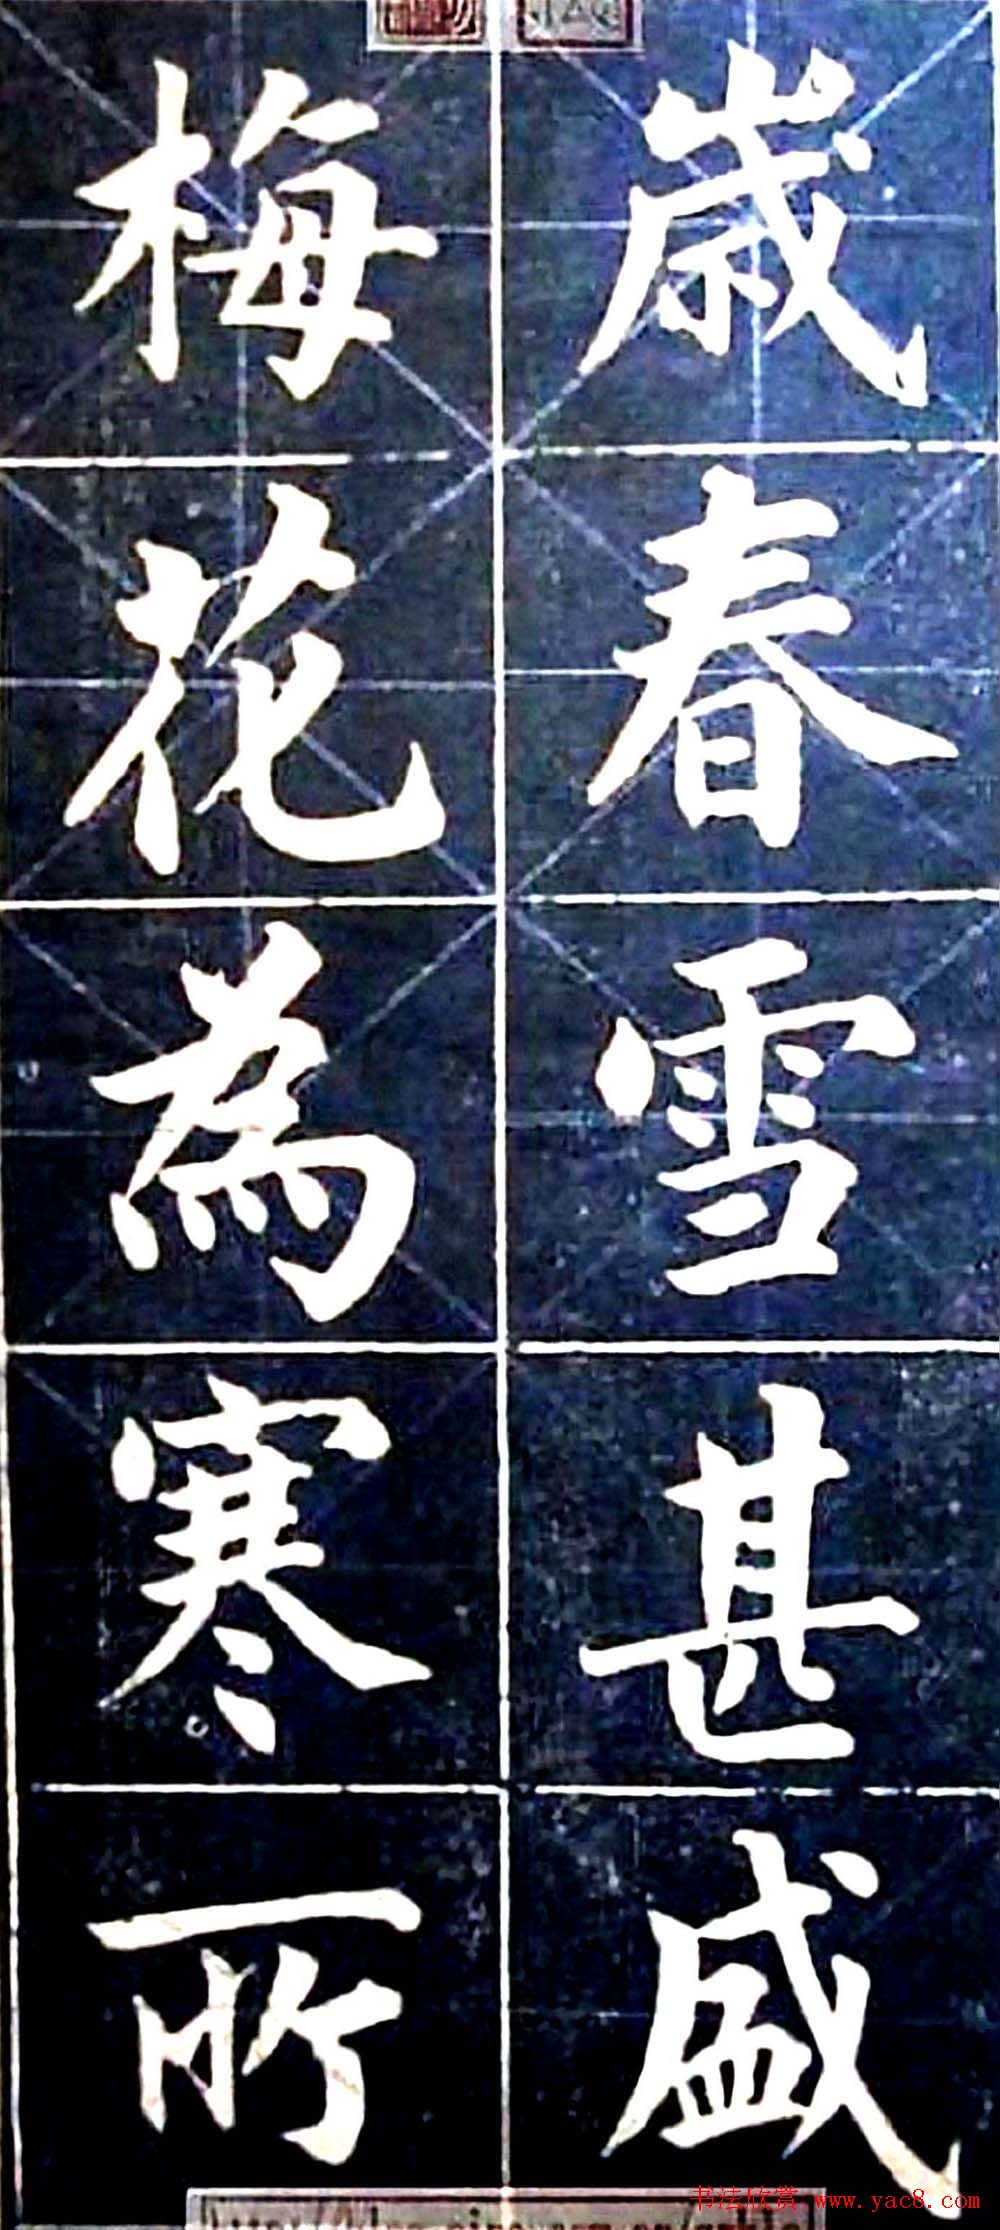 歲春雪甚盛
梅花為寒所
书法欣赏 www.yac8.com